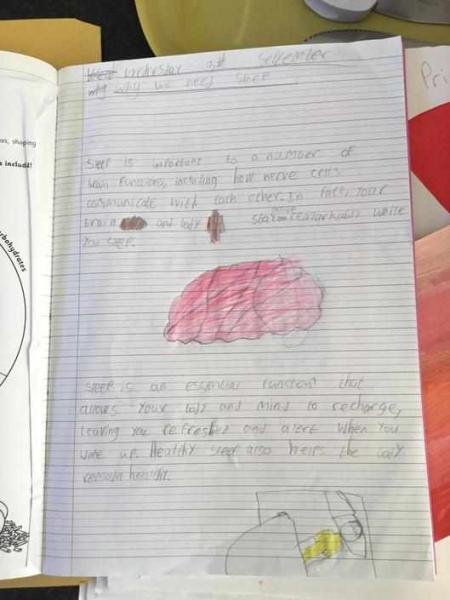 Wednesday September
why why we need sleep
sleep is important to a number of
brain functions, including how nerve cells
communicate with each other. In fact, your
brain and body stay remarkably while
you sleep.
sleep is an essential function that
allows your body and mind to recharge,
leaving you refreshed and alert when you
wake up. Healthy sleep also helps the body
remain healthy.
ns, shaping
s include!
arbohydrates
Pri